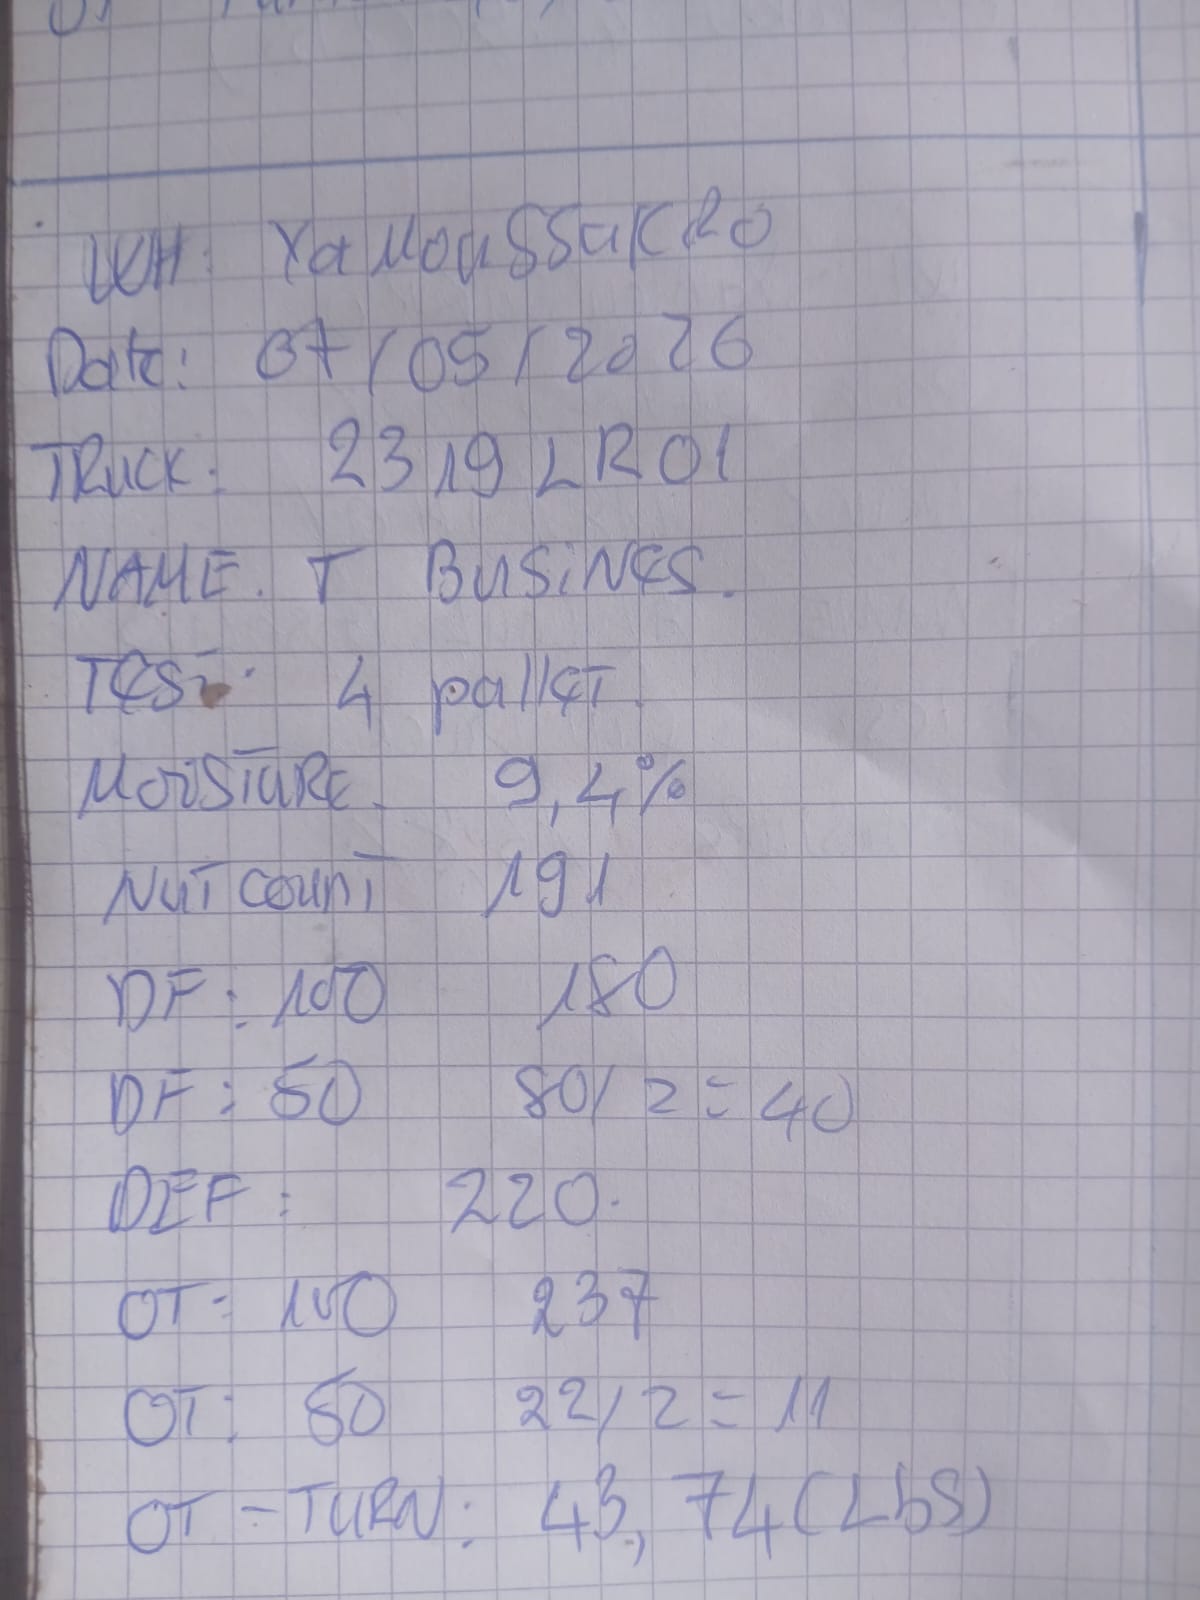 WH: YaMoussaKRo
Date: 07/05/2026
TRuCK: 2319LR01
NAME. T BusiNES.
TEST: 4 pallET.
MoiSTuRE. 9,4%
NuTcounT 191
DF: 100 180
DF: 50 80/2=40
DEF: 220.
OT: 100 237
OT: 50 22/2=11
OT-TuRN: 43,74(LbS)